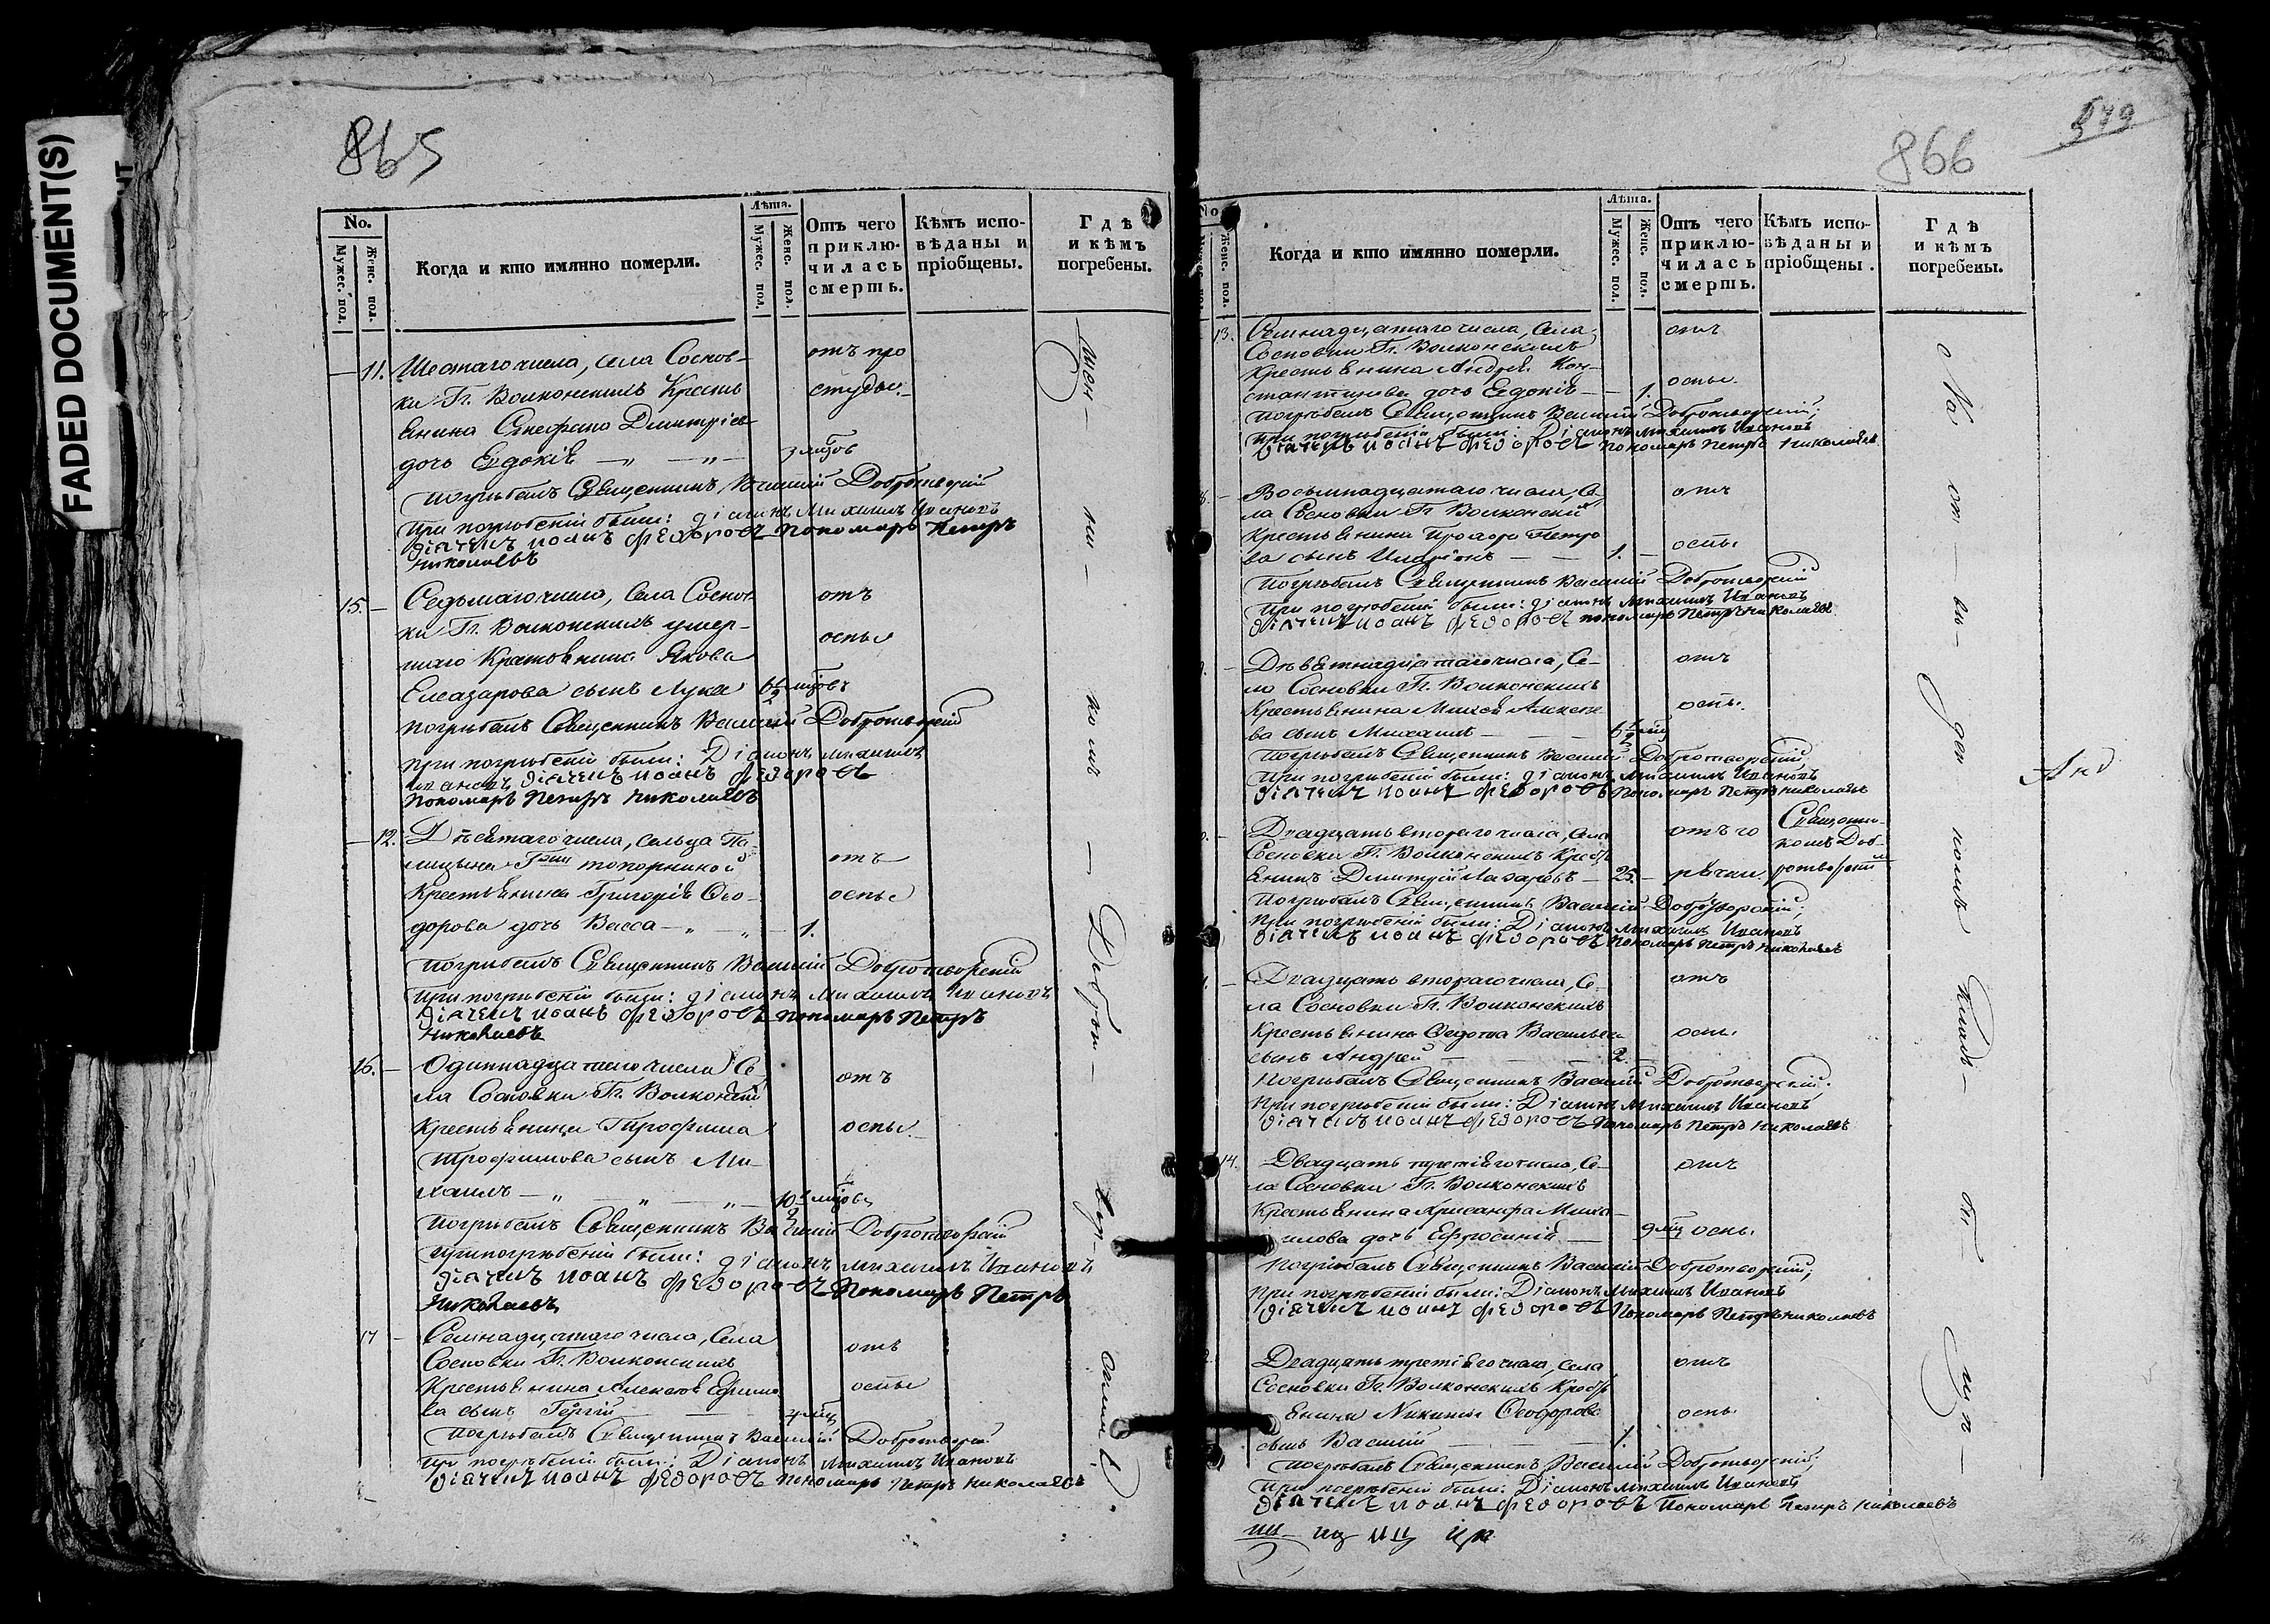 FADED DOCUMENT(S)
865
No.
Мужес. пол.
Женс. пол.
Когда и кто имянно померли.
Лѣта.
Мужес. пол.
Женс. пол.
Отъ чего приклю-
чилась смерть.
Кѣмъ испо-
вѣданы и
пріобщены.
Гдѣ
и кѣмъ
погребены.
11. Шестаго числа, села Соснов- отъ про
ки Гг. Волконскихъ Кресть студы.
янина Стефана Дмитріева
дочь Евдокія
погребалъ Священникъ Василій Добротворскій
при погребеніи были: діаконъ Михаилъ Ивановъ
діачекъ Иоанъ Федоровъ Пономарь Петръ
Николаевъ
15. Седьмаго числа, Села Соснов- отъ
ки Гг. Волконскихъ умер- оспы
шаго Крестьянина Якова
Елеазарова сынъ Лука
погребалъ Священникъ Василій Добротворскій
при погребеніи были: Діаконъ Михаилъ
Ивановъ діачекъ Иоанъ Федоровъ
Пономарь Петръ Николаевъ
12. Десятаго числа, сельца Па-
отъ
Крестьянина Григорія Ѳео- оспы
дорова дочь Васса 1.
погребалъ Священникъ Василій Добротворскій
при погребеніи были: діаконъ Михаилъ Ивановъ
діачекъ Иоанъ Федоровъ Пономарь Петръ
Николаевъ
16. Одиннадцатаго числа Се-
ла Сосновки Гг. Волконскихъ отъ
Крестьянина Трофима оспы
Трофимова сынъ Ми-
хаилъ
погребалъ Священникъ Василій Добротворскій
при погребеніи были: діаконъ Михаилъ Ивановъ
діачекъ Иоанъ Федоровъ Пономарь Петръ
Николаевъ
17 Семнадцатаго числа, Села
Сосновки Гг. Волконскихъ отъ
Крестьянина Алексѣя Ефимо оспы
ва сынъ Георгій
погребалъ Священникъ Василій Добротворскій
при погребеніи были: Діаконъ Михаилъ Ивановъ
діачекъ Иоанъ Федоровъ Пономарь Петръ Николаевъ
866
No
Женс. пол.
Когда и кто имянно померли.
Лѣта.
Мужес. пол.
Женс. пол.
Отъ чего приклю-
чилась смерть.
Кѣмъ испо-
вѣданы и
пріобщены.
Гдѣ
и кѣмъ
погребены.
13. Семнадцатаго числа, Села отъ
Сосновки Гг. Волконскихъ
Крестьянина Андрея Кон- оспы.
стантинова дочь Евдокія 1.
погребалъ Священникъ Василій Добротворскій;
при погребеніи были: Діаконъ Михаилъ Ивановъ
діачекъ Иоанъ Федоровъ Пономарь Петръ Николаевъ
Восьмнадцатаго числа, Се- отъ
ла Сосновки Гг. Волконскихъ
Крестьянина Прохора Петро оспы
ва сынъ Иларіонъ 1.
погребалъ Священникъ Василій Добротворскій
при погребеніи были: діаконъ Михаилъ Ивановъ
діачекъ Иоанъ Федоровъ пономарь Петръ Николаевъ
Девятнадцатаго числа, Се- отъ
ла Сосновки Гг. Волконскихъ
Крестьянина оспы.
ва сынъ Михаилъ
погребалъ Священникъ Василій Добротворскій
при погребеніи были: діаконъ Михаилъ Ивановъ
діачекъ Иоанъ Федоровъ Пономарь Петръ Николаевъ
Двадцать втораго числа, Села отъ го Священни-
Сосновки Гг. Волконскихъ Кресть комъ Доб-
янинъ Дмитрій Лазаревъ 25. рячки ротворскимъ
Погребалъ Священникъ Василій Добротворскій;
при погребеніи были: Діаконъ Михаилъ Ивановъ
діачекъ Иоанъ Федоровъ Пономарь Петръ Николаевъ
Двадцать втораго числа, Се- отъ
ла Сосновки Гг. Волконскихъ
Крестьянина Ѳедота Васильева оспы
сынъ Андрей 2.
погребалъ Священникъ Василій Добротворскій.
при погребеніи были: Діаконъ Михаилъ Ивановъ
діачекъ Иоанъ Федоровъ Пономарь Петръ Николаевъ
14. Двадцать третіяго числа, Се- отъ
ла Сосновки Гг. Волконскихъ
Крестьянина Хрисанфа Миха-
илова дочь Ефросинія оспы
Погребалъ Священникъ Василій Добротворскій;
при погребеніи были: Діаконъ Михаилъ Ивановъ
діачекъ Иоанъ Федоровъ Пономарь Петръ Николаевъ
Двадцать третіяго числа, села отъ
Сосновки Гг. Волконскихъ Кресть
янина Никиты Ѳеодорова оспы
сынъ Василій 1.
погребалъ Священникъ Василій Добротворскій;
при погребеніи были: Діаконъ Михаилъ Ивановъ
діачекъ Иоанъ Федоровъ Пономарь Петръ Николаевъ